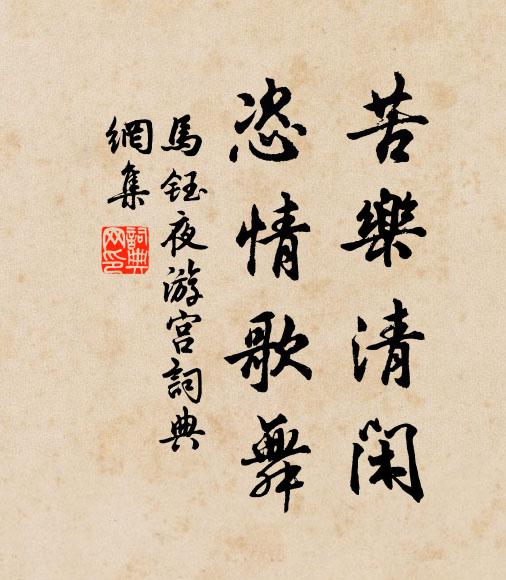 苦樂清閑
恣情歌舞
馬鈺夜游宮詞典
網集
詞典網印